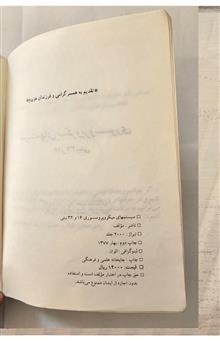 * تقدیم به همسر گرامی و فرزندان عزیزم
□ سیستمهای میکروپروسسوری ۱۶ و ۳۲ بیتی
□ ناشر: مؤلف
□ تیراژ: ۳۰۰۰ جلد
□ چاپ دوم: بهار ۱۳۷۷
□ لیتوگرافی: الوان
□ چاپ: چاپخانه علمی و فرهنگی
□ قیمت: ۱۲۰۰۰ ریال
حق چاپ در اختیار مؤلف است و استفاده
بدون اجازه از ایشان ممنوع می‌باشد.